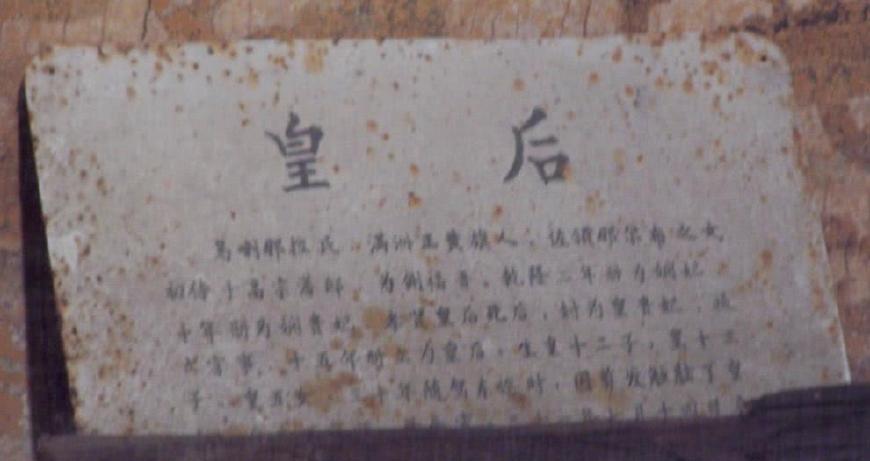 皇 后
乌喇那拉氏,满洲正黄旗人,佐领那尔布之女,
初侍于高宗潜邸,为侧福晋。乾隆二年册为娴妃
十年册为娴贵妃 孝贤皇后死后,封为皇贵妃,摄
六宫事。十五年册立为皇后,生皇十二子,皇十三
子,皇五女 三十年随驾南巡时,因剪发触触了皇
年七月十四日